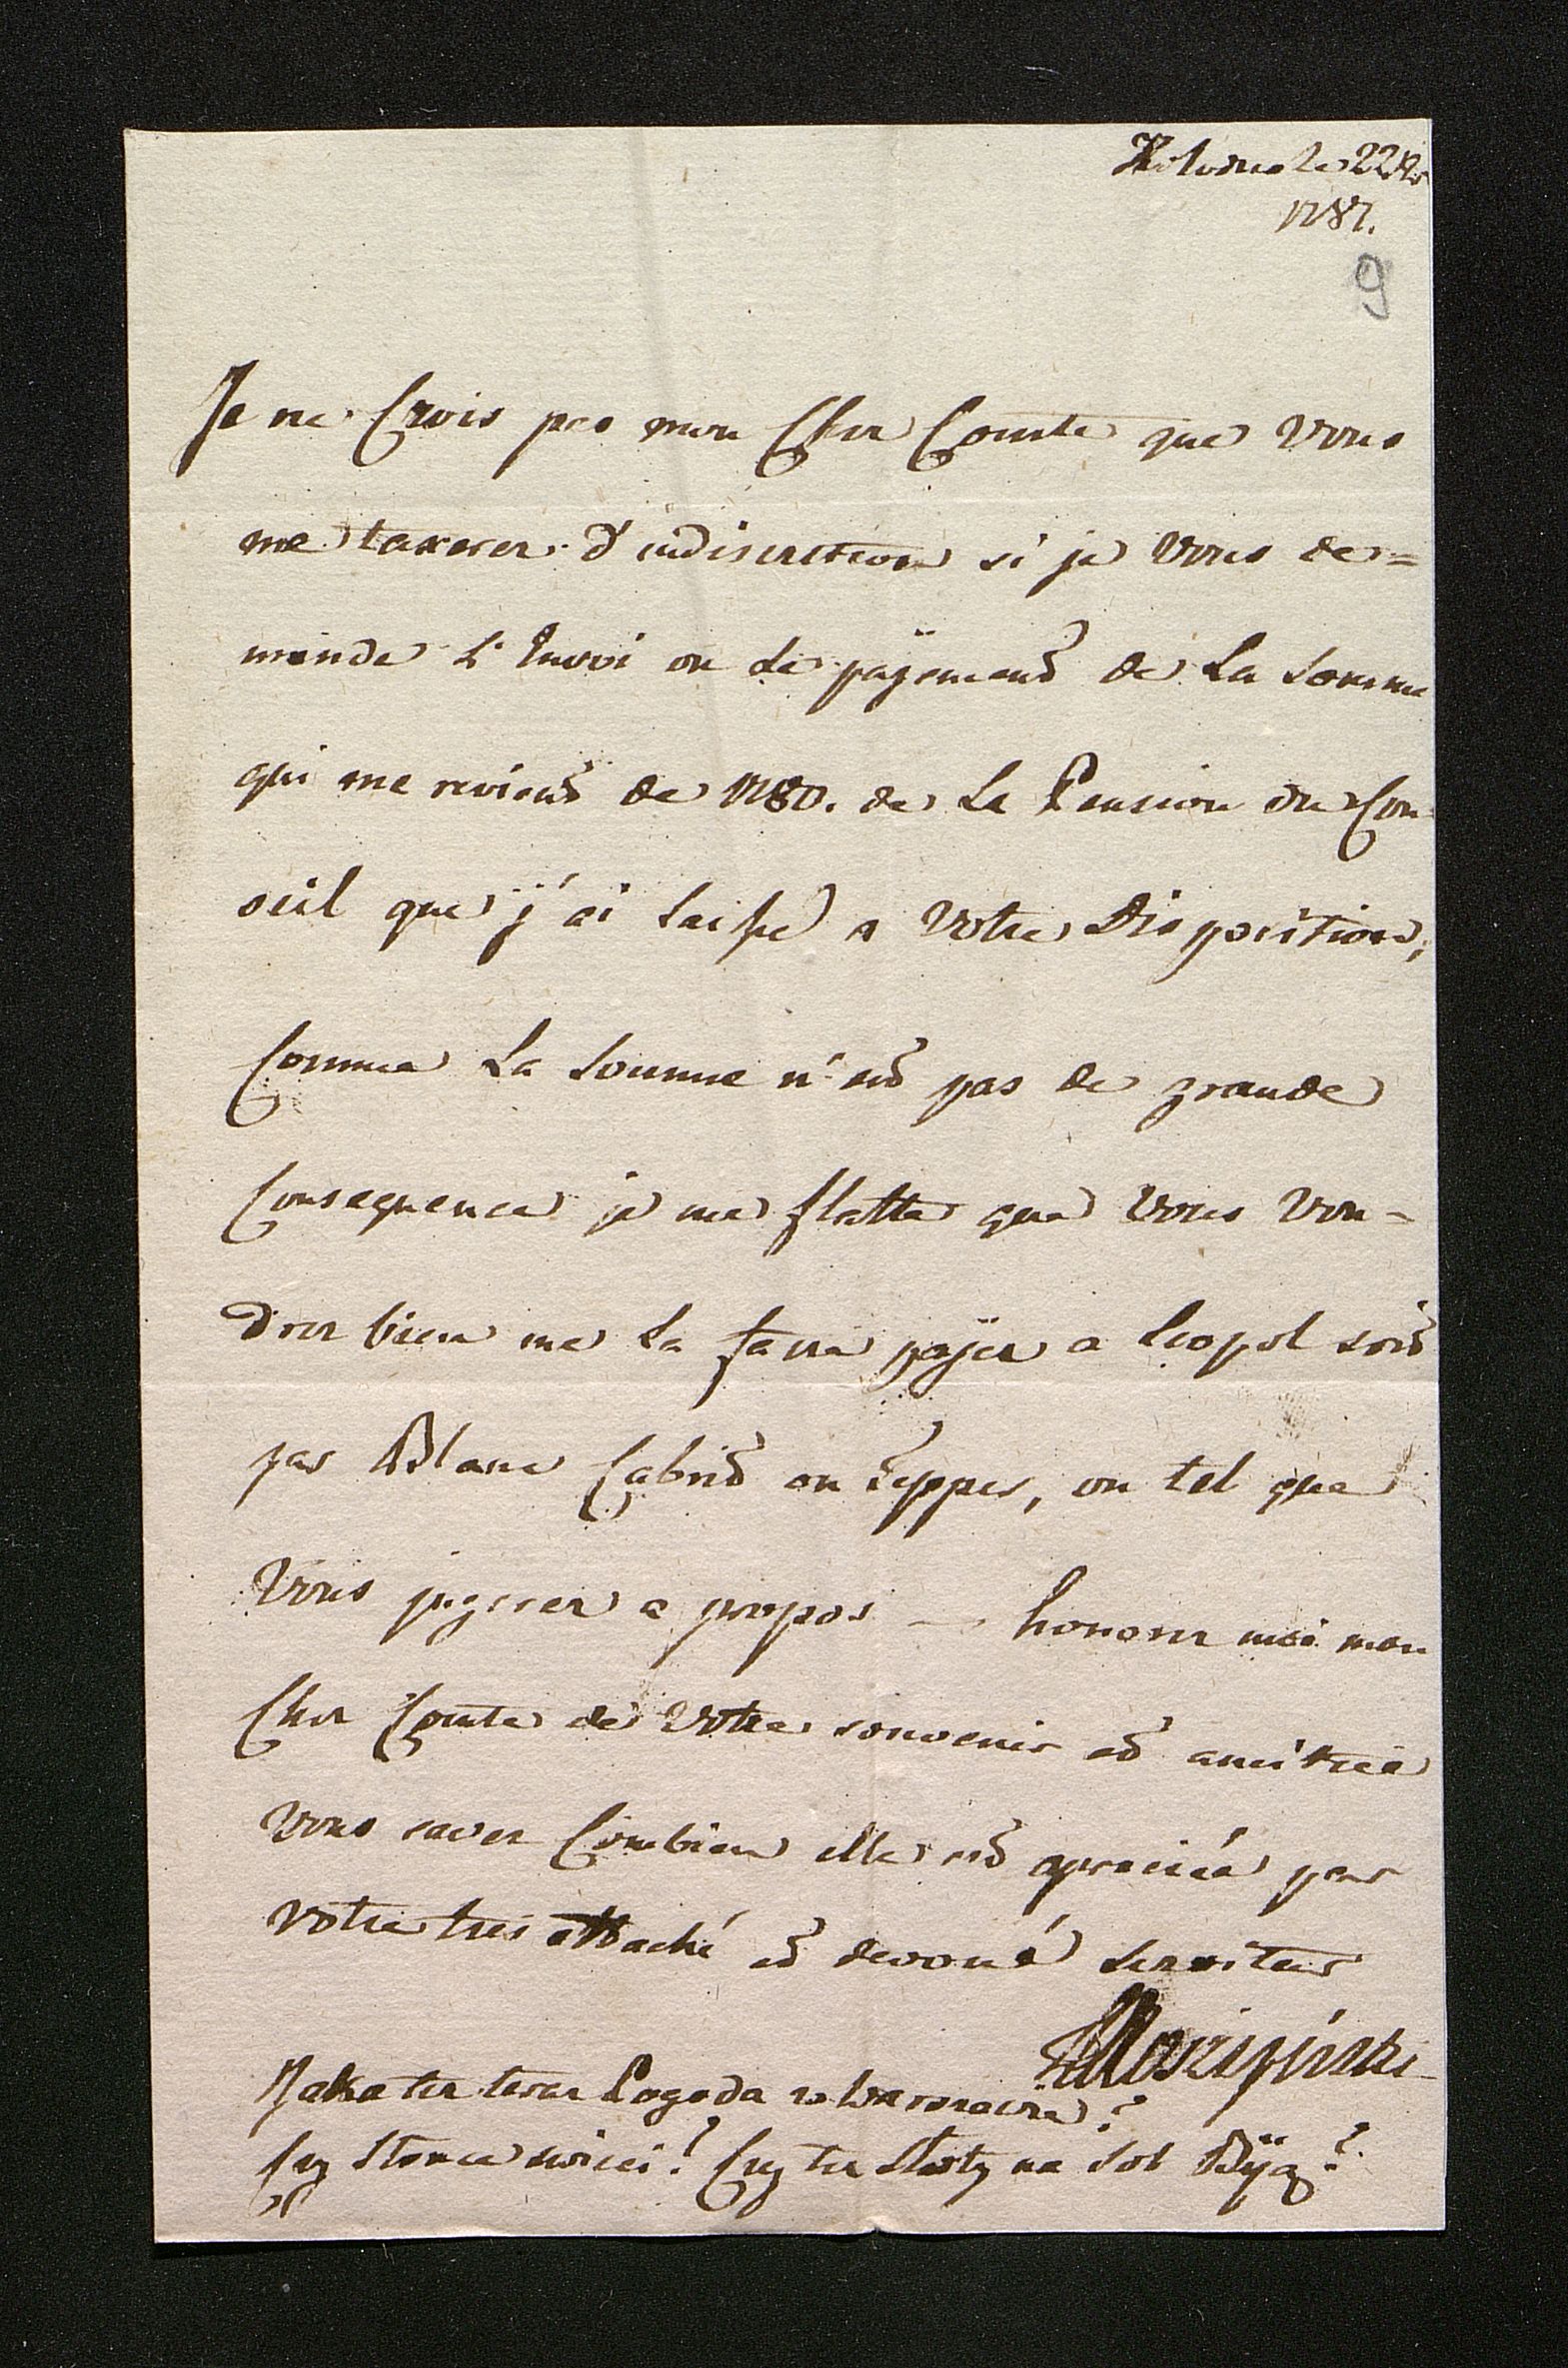 le 22
1781.
9
Je ne Crois pas mon Cher Comte que Vous
me taxerez d'indiscretion si je Vous de=
mande L'Envoi ou Le päyement de La Somme
qui me revient de 1780. de La Pension du Con
seil que j'ai Laissé a Votre Disposition,
Comme La Somme n'est pas de grande
Consequence je me flatte que Vous Vou=
drez bien me La faire päyer a Leopol soit
par Blanc Cabrit ou Tepper, ou tel que
Vous jugerez a propos — honorez moi mon
Cher Comte de Votre souvenir et amitiée
Vous savez Combien elle est apreciée par
Votre tres attaché et devoué Serviteur
Moszyński
Jaka tez teraz Pogoda w Warszawie?
Czy Słonce swieci? Czy tez Słoty na Sol Byją?